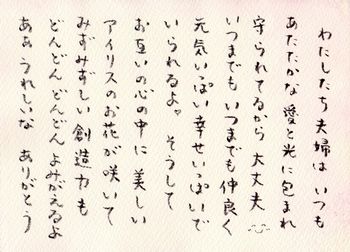 わたしたち夫婦は いつも
あたたかな 愛と光に包まれ
守られてるから 大丈夫
いつまでも いつまでも 仲良く
元気いっぱい 幸せいっぱいで
いられるよ。 そうして
お互いの心の中に 美しい
アイリスのお花が 咲いて
みずみずしい 創造力も
どんどん どんどん よみがえるよ
ああ うれしいな ありがとう